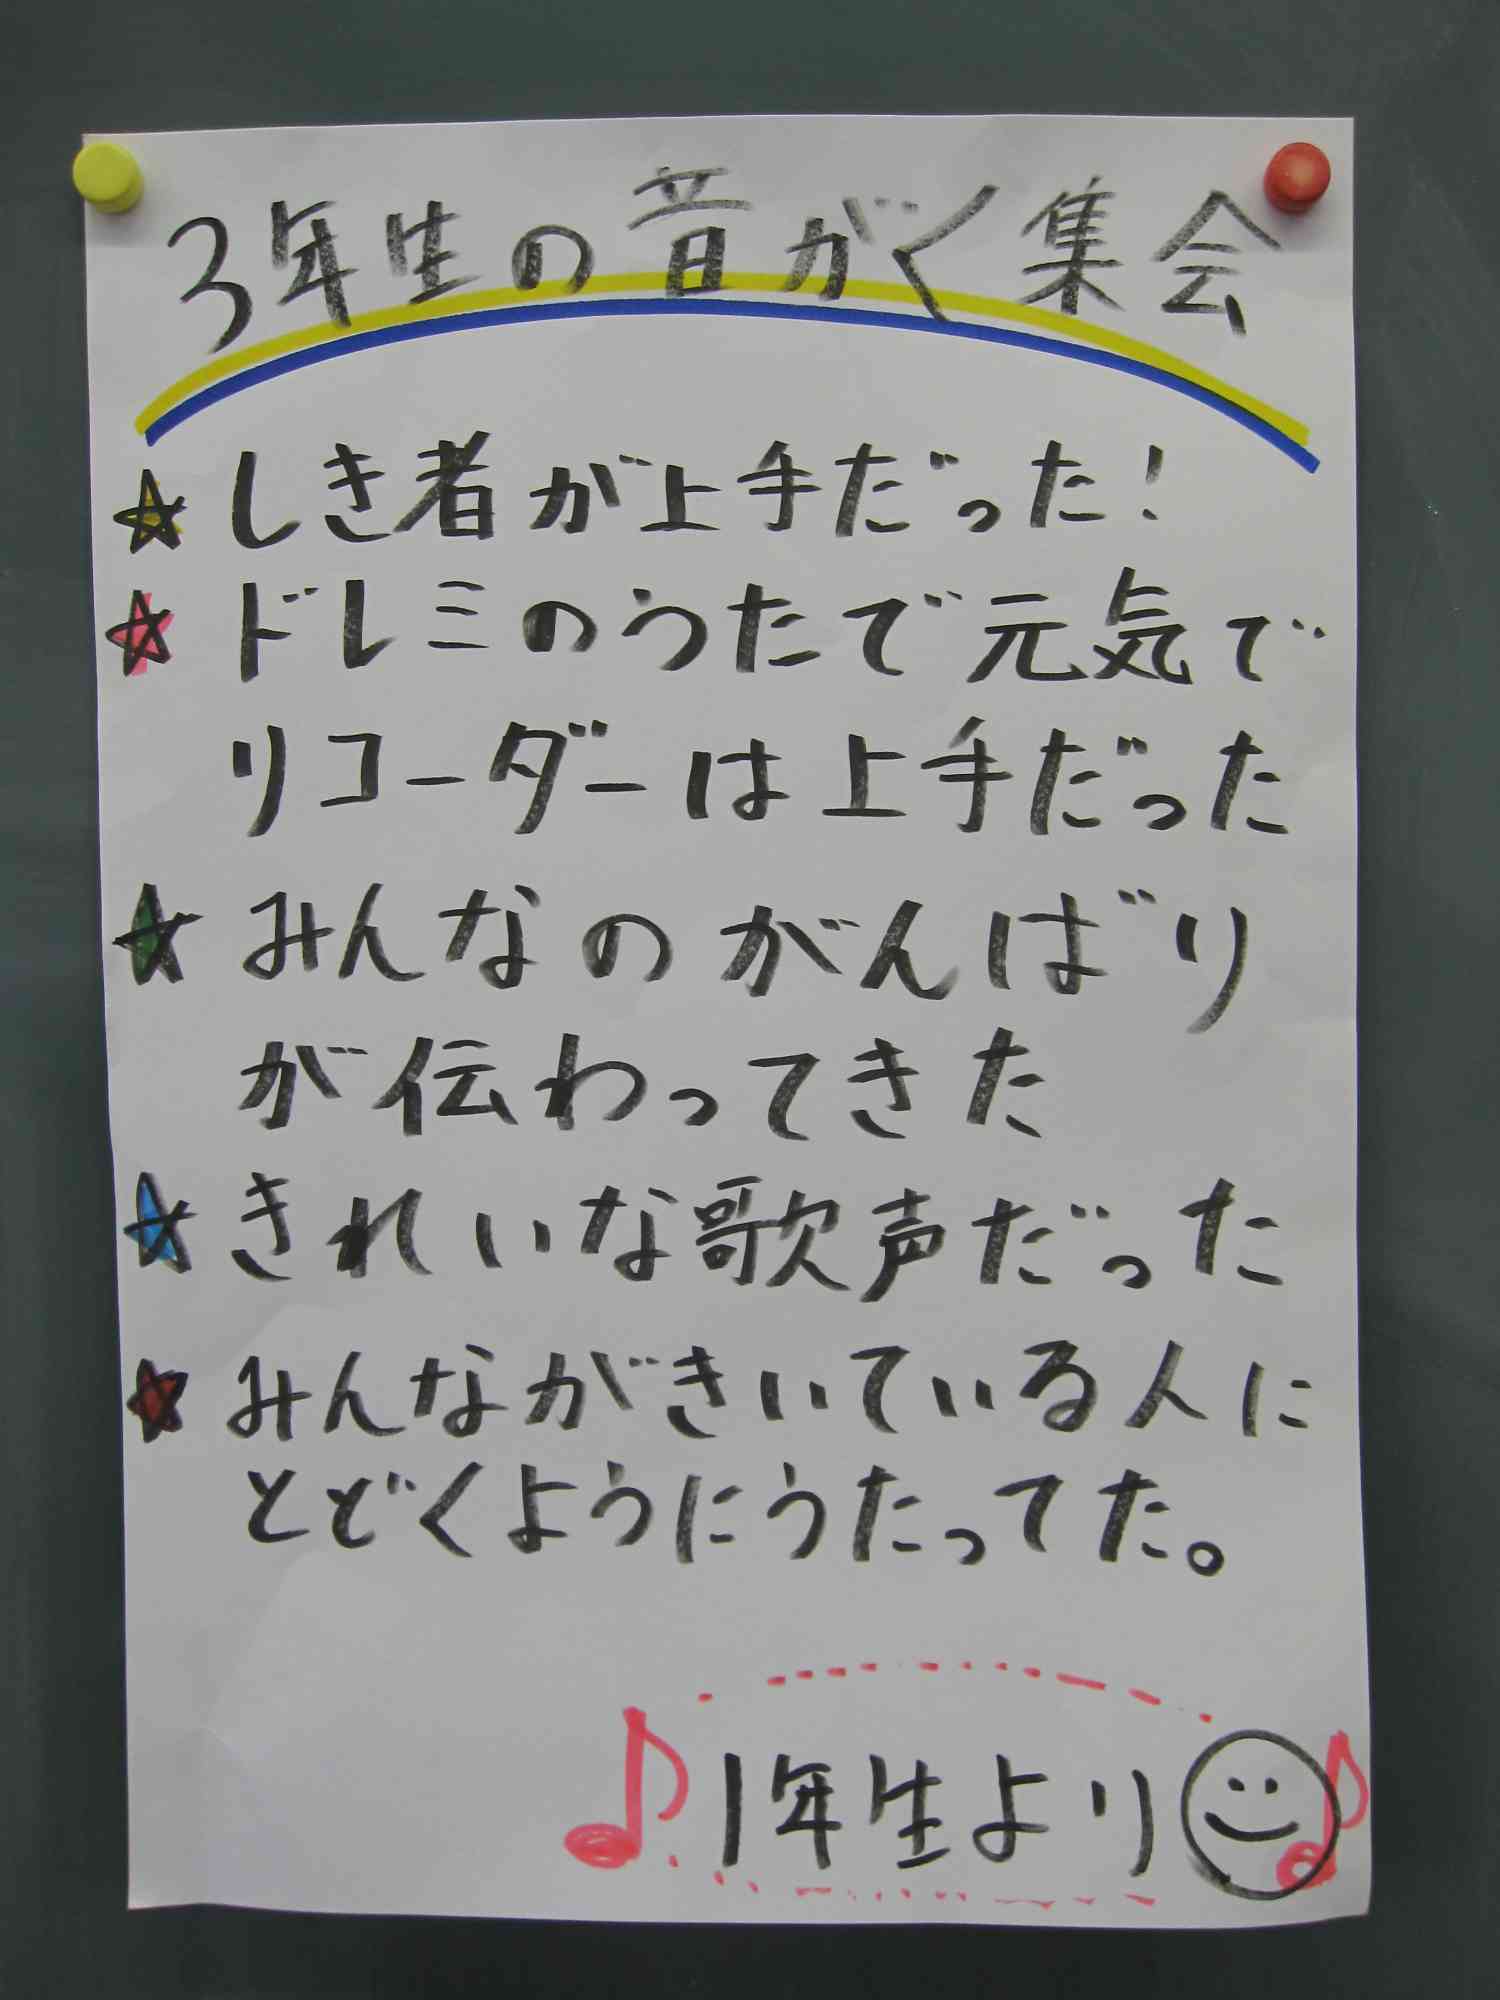 3年生の音がく集会
しき者が上手だった!
ドレミのうたで元気で
リコーダーは上手だった
みんなのがんばり
が伝わってきた
きれいな歌声だった
みんながきいている人に
とどくようにうたってた。
1年生より